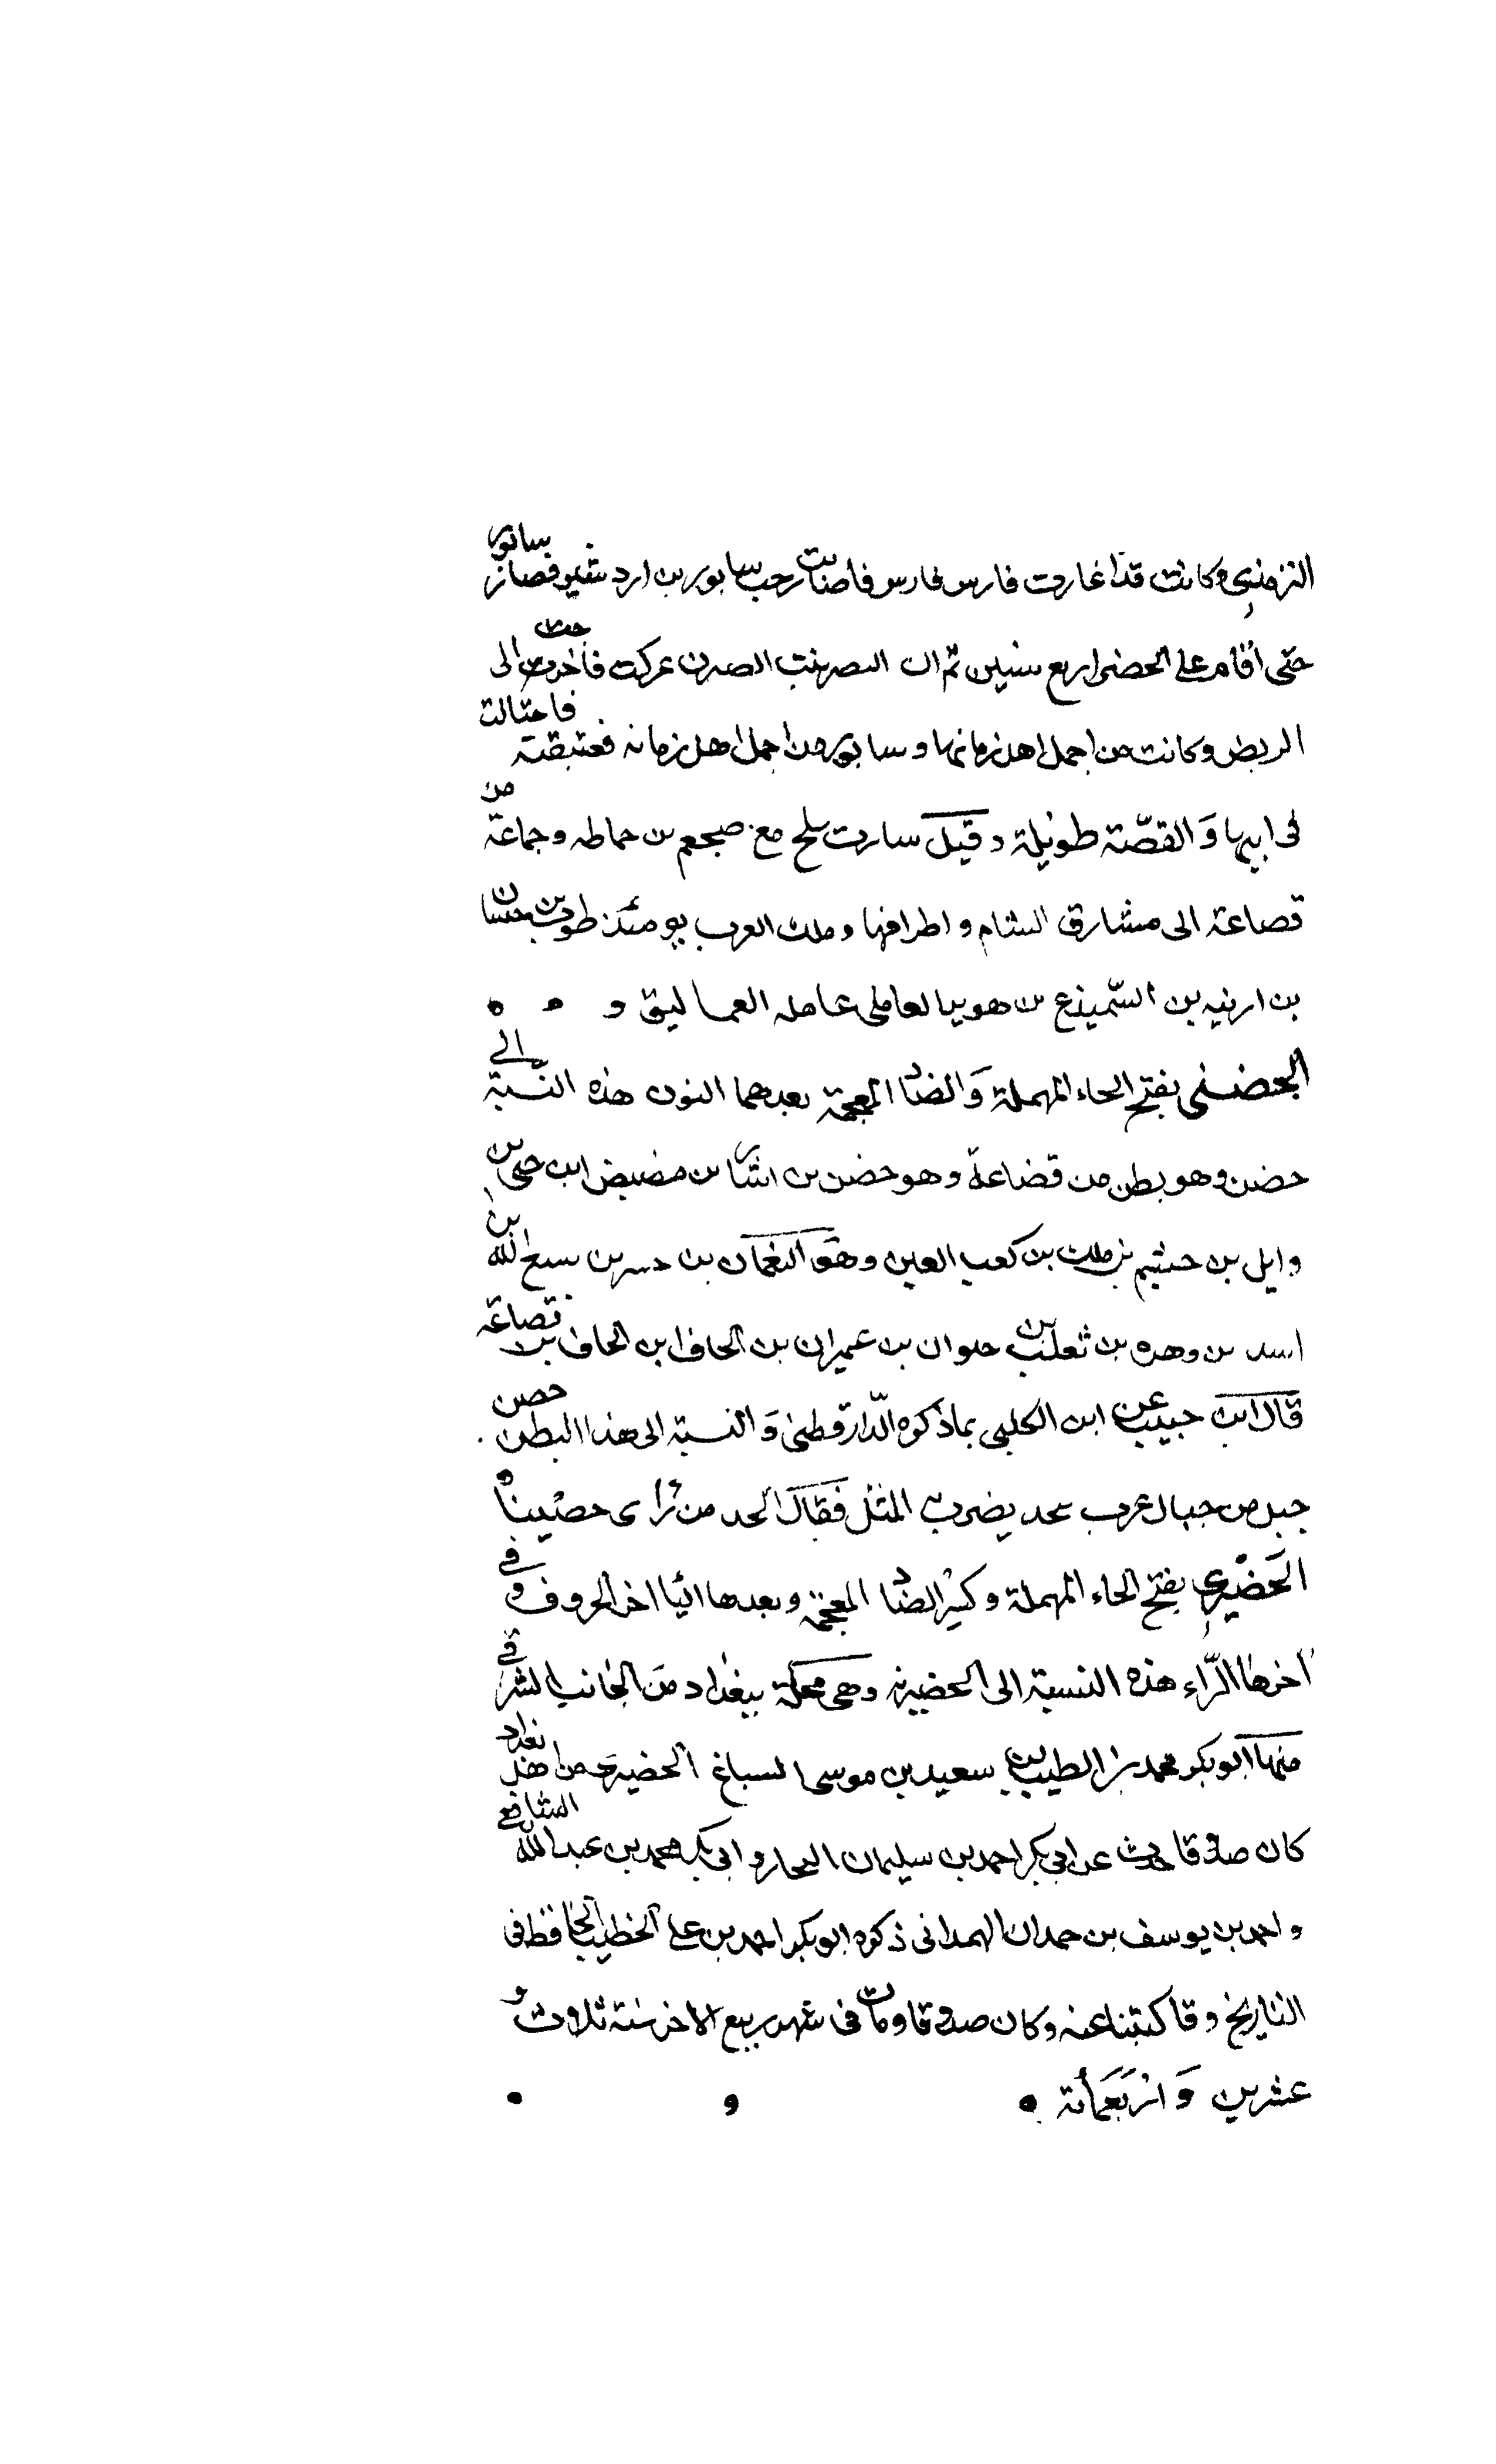 وكانت قد اغارت فارس فارس فاصابت رحب سابور بن اردشير فصار سابور
حتى اقام على الحضر اربع سنين ثم ان النصر بنت الصرن عركت فاخرجت الى
الربض وكانت من اجمل اهل زمانها وسابور من اجمل اهل زمانه فعشقته فاحتالت
فى ابيها وَالقصّة طويلة وقيل سارت سلح مع ضجعم بن حماطه وجماعة من
قصاعة الى مشارق الشام واطرافها وملك العرب يومئذ طرب بن حسان
بن ادنيه بن السّميذع بن هوبر العاملى عامله العماليق و
الحضنى بفتح الحاء المهملة وَالضاد المعجمة بعدهما النون هذه النسبة الى
حضن وهو بطن من قضاعة وهو حضن بن اسار بن مضيض ابن حى بن
وايل بن جشيم بن ملك بن كعب العين وهو النعمان بن جسر بن سبع الله بن
اسد بن وبره بن ثعلب بن حلوان بن عمران بن الحاف ابن الحاف بن قصاعة
قال ابن حبيب عن ابن الكلبى بما ذكره الدّارقطنى وَالنسبة الى هذا البطن حصن
جبل من جبال غرب نجد يضرب به المثل فقال انجد من رأى حصينا
الحَضْيرى بفتح الحاء المهملة وكسْر الضاد المعجمة وبعدها اليا اخر الحروف وفى
اخرها الرّاء هذه النسبة الى الحضيرية وهى محلة ببغداد من الجانب الشرقى
منها ابو بكر محمد بن الطيب بن سعيد بن موسى الصباغ الحضيرى من اهل بغداد
كان صدوقا حدث عن ابى بكر احمد بن سليمان النجار وابى بكر محمد بن عبد الله الشافعى
واحمد بن يوسف بن حمدان الهمدانى ذكره ابو بكر احمد بن على الخطيب الحافظ فى
التاريخ وقا كتبنا عنه وكان صدوقا ومات فى شهر ربيع الاخر سنة ثلاث و
عشرين وَاربَعمائة